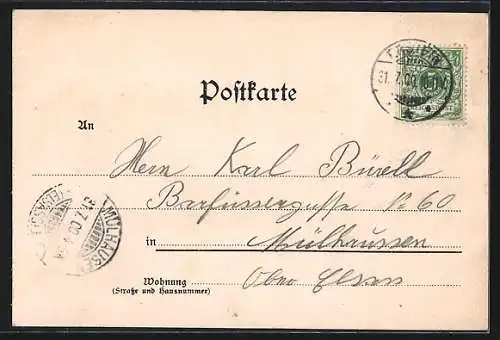 31.7.00
Postkarte
An
Herrn Karl Bürell
Barfüssergasse No 60
in Mülhaussen
Ober Elsass
Wohnung
(Straße und Hausnummer)
MÜLHAUSEN
31.7.00